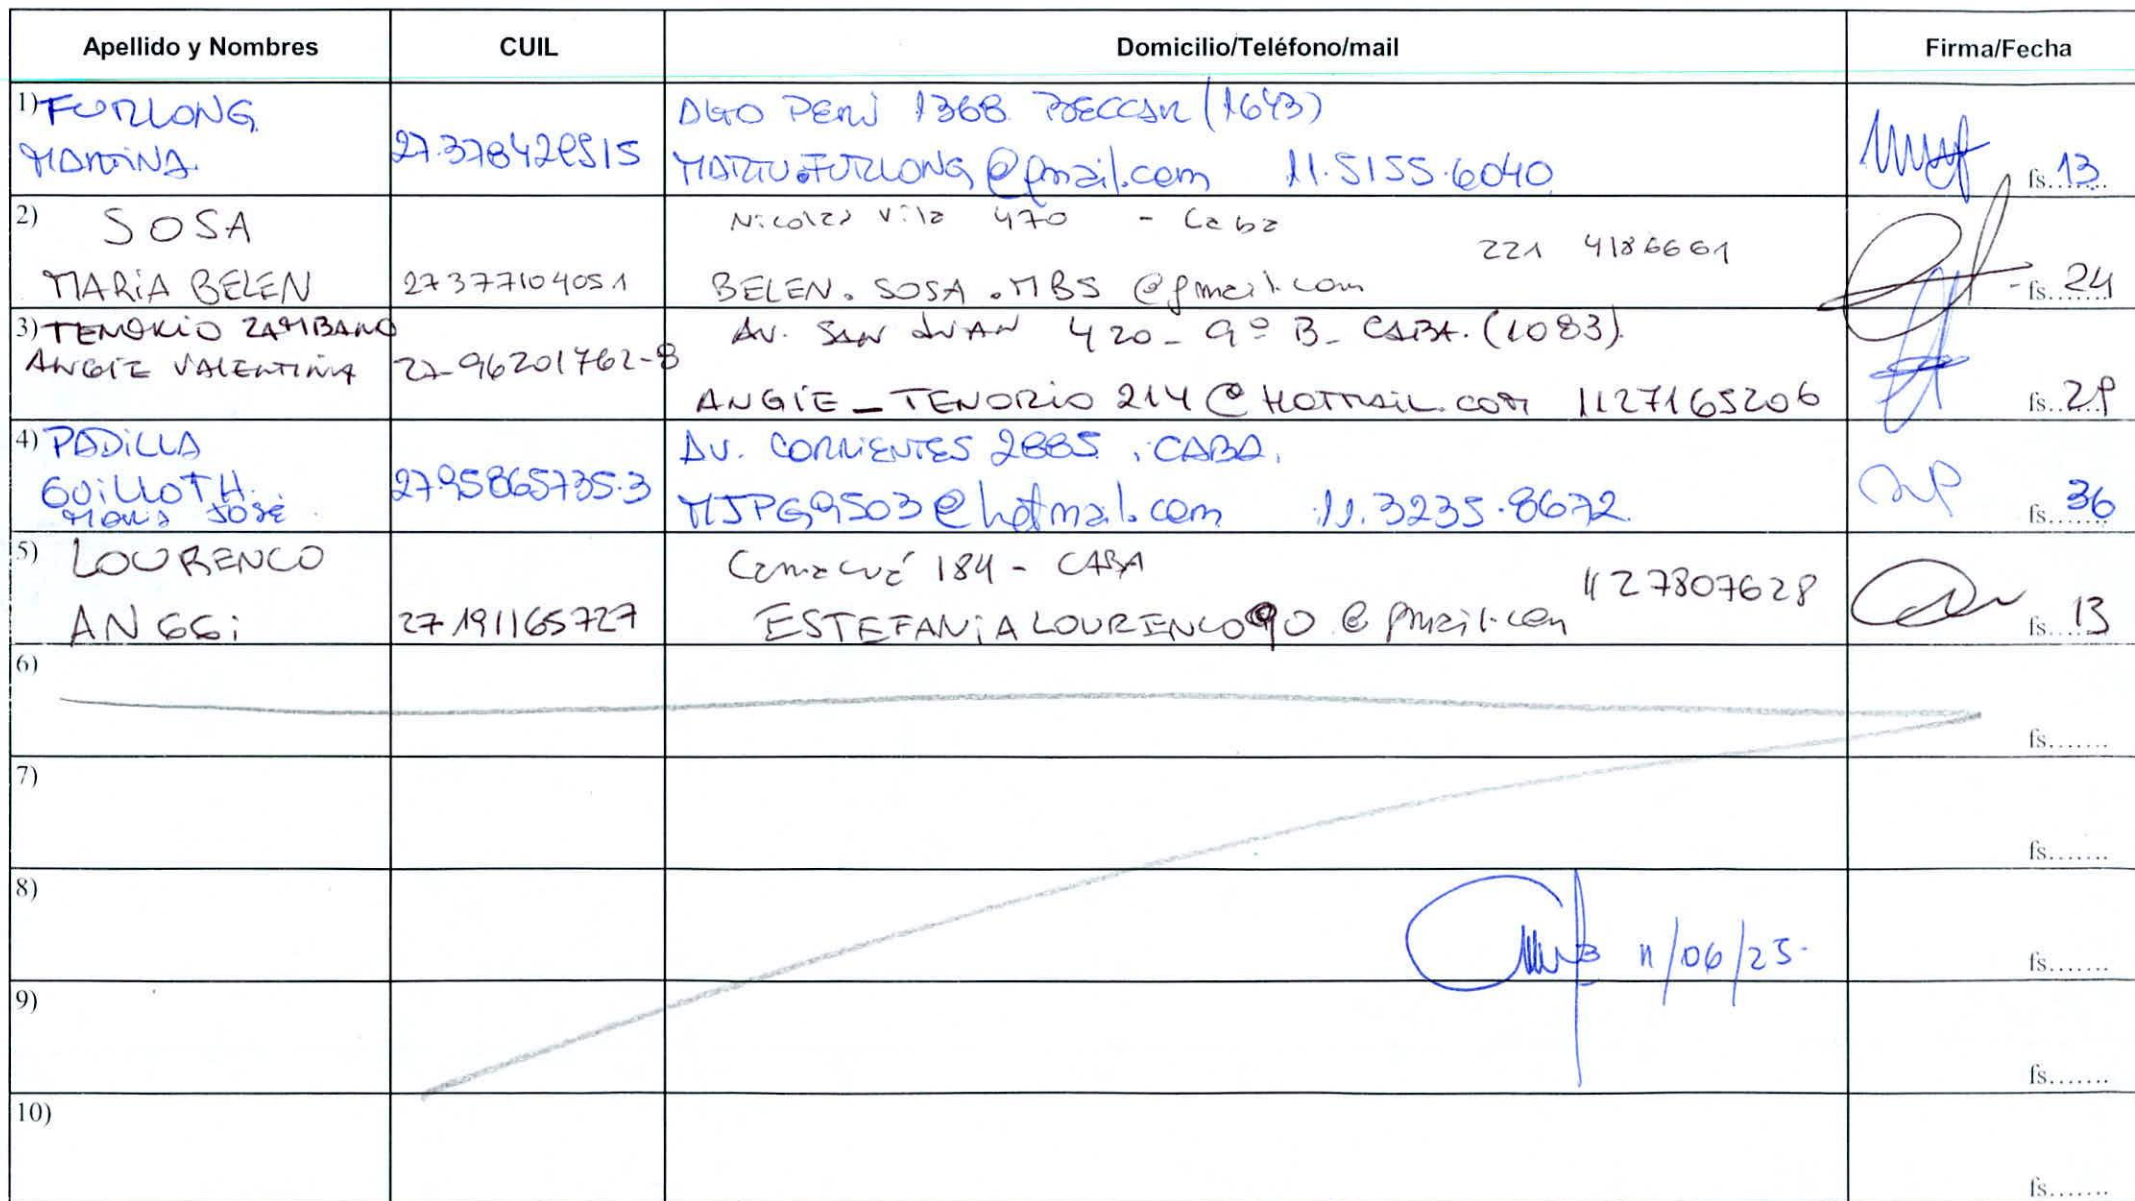 Apellido y Nombres CUIL Domicilio/Teléfono/mail Firma/Fecha
1) FURLONG
MARTINA 27.378428515
DGO PERÚ 1368 BECCAR (1643)
MARTU.FURLONG@gmail.com 11.5155.6040
fs. 13
2) SOSA
MARIA BELEN 27377104051
Nicolas Vila 470 - Caba
221 4186661
BELEN.SOSA.MBS @gmail.com
fs. 24
3) TENORIO ZAMBRANO
ANGIE VALENTINA 27-96201762-8
AV. SAN JUAN 420 - 9º B - CABA. (1083).
ANGIE_TENORIO 214@HOTMAIL.COM 1127165206
fs. 29
4) PADILLA
GUILLOTH.
MARIA JOSÉ. 27958657353
AV. CORRIENTES 2885. CABA.
MJPG9503@hotmail.com 11.3235.8672
fs. 36
5) LOURENCO
ANGGi 27191165727
Camacuá 184 - CABA
1127807628
ESTEFANiALOURENCO90 @ gmail.com
fs. 13
6)
fs.......
7)
fs.......
8)
11/06/25.
fs.......
9)
fs.......
10)
fs.......